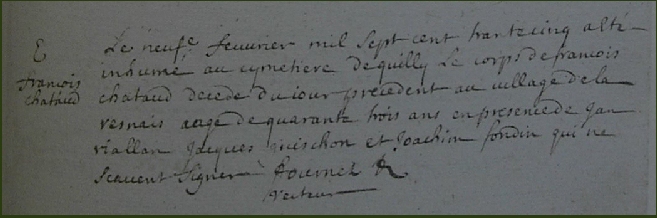 E
françois
chataud
Le neufe feuurier mil sept cent trante cinq a été
inhumé au cymetiere de quilly Le corps de francois
chataud decede du iour precedent au uillage de la
vesnais aagé de quarante trois ans en presence de Jan
viallan Jacques et Joachim fondin qui ne
scauent signer fournel R
recteur